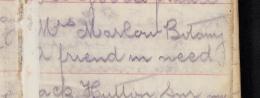 Mrs Marlow Botany
a friend in need)
Jack Hutton Sur